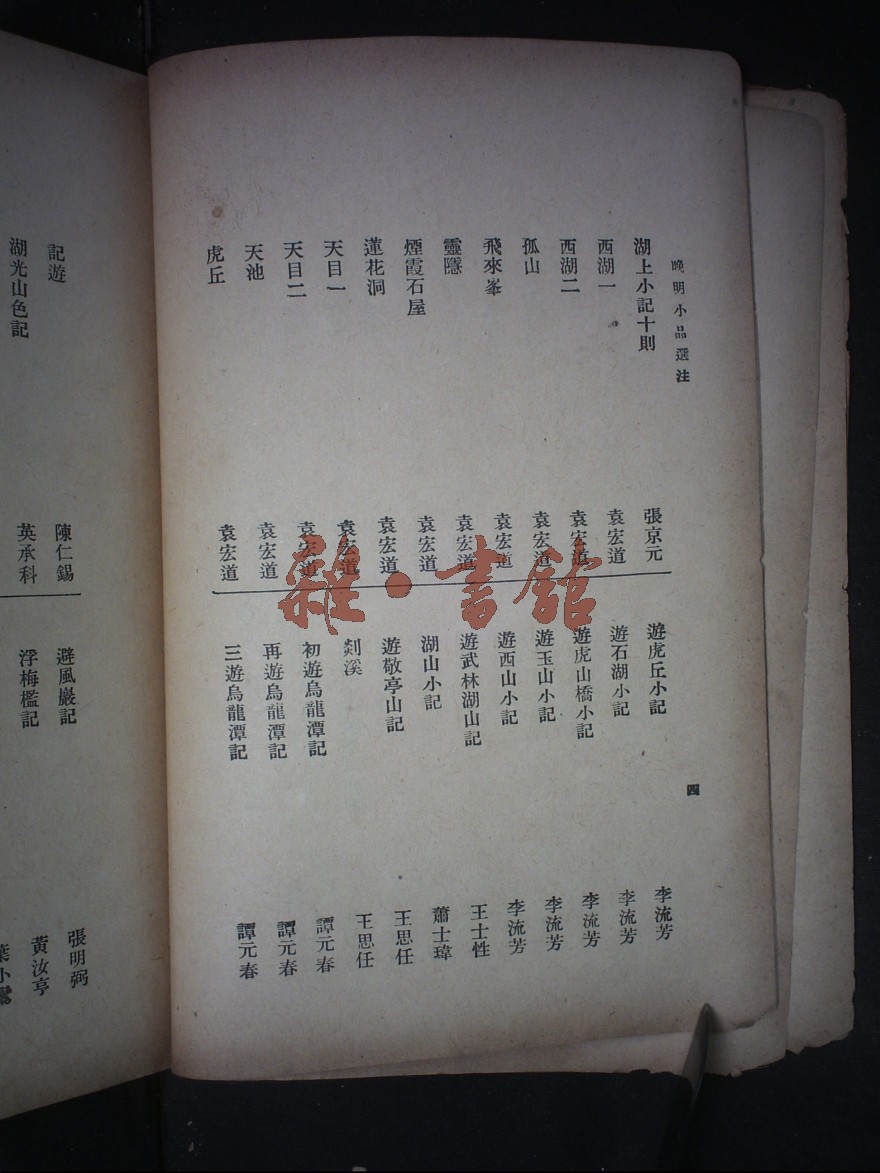 晚明小品選注
四
湖上小記十則 張京元
西湖一 袁宏道
西湖二 袁宏道
孤山 袁宏道
飛來峯 袁宏道
靈隱 袁宏道
煙霞石屋 袁宏道
蓮花洞 袁宏道
天目一 袁宏道
天目二 袁宏道
天池 袁宏道
虎丘 袁宏道
遊虎丘小記 李流芳
遊石湖小記 李流芳
遊虎山橋小記 李流芳
遊玉山小記 李流芳
遊西山小記 李流芳
遊武林湖山記 王士性
湖山小記 蕭士瑋
遊敬亭山記 王思任
剡溪 王思任
初遊烏龍潭記 譚元春
再遊烏龍潭記 譚元春
三遊烏龍潭記 譚元春
記遊 陳仁錫
湖光山色記 英承科
避風巖記 張明弼
浮梅檻記 黃汝亨
葉小鸞
雜·書館